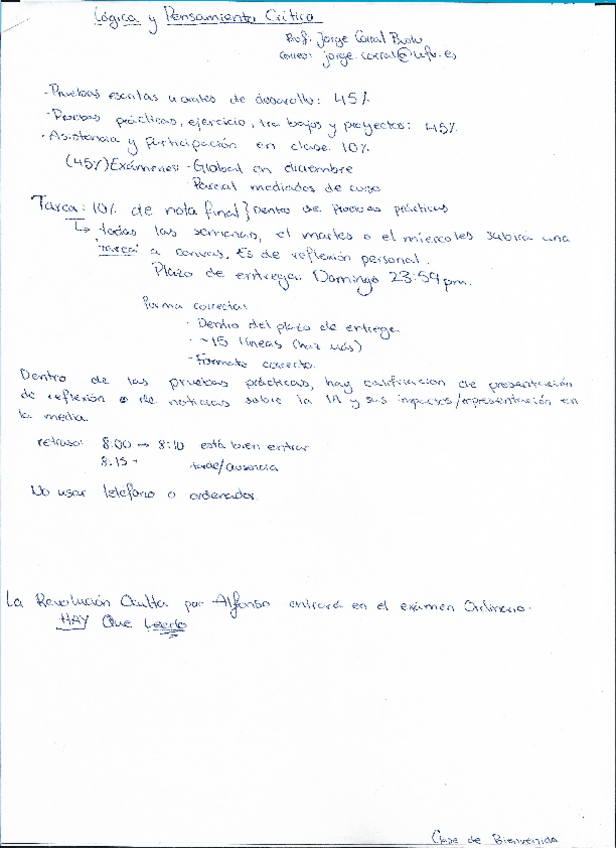 Lógica y Pensamiento Crítico
Prof. Jorge Corral
correo: jorge.corral@ufv.es
- Pruebas escritas u orales de desarrollo: 45%
- Pruebas prácticas, ejercicio, trabajos y proyectos: 45%
- Asistencia y participación en clase. 10%
(45%) Exámenes: - Global en diciembre
- Parcial mediados de curso
Tarea: 10% de nota final } Dentro de pruebas prácticas
↳ todas las semanas, el martes o el miercoles subirá una
"tarea" a canvas. Es de reflexión personal.
Plazo de entrega: Domingo 23:59 pm.
Forma correcta:
- Dentro del plazo de entrega
- ~15 líneas (haz más)
- Formato correcto.
Dentro de las pruebas prácticas, hay calificacion de presentación
de reflexión o de noticias sobre la IA y sus impactos/representación en
la media.
retraso: 8:00 → 8:10 está bien entrar
8:15 + tarde/ausencia
No usar teléfono o ordenador.
La Revolución Oculta por Alfonso entrará en el exámen Ordinario.
HAY Que Leerlo
Clase de Bienvenida